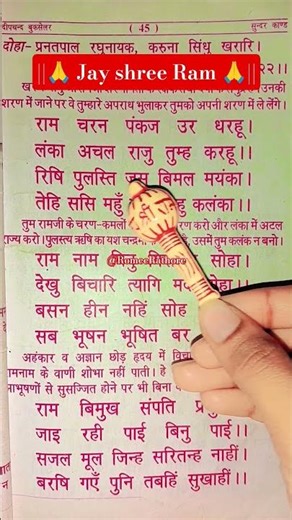 दीपचन्द बुकसेलर ( 45 ) सुन्दर काण्ड
दोहा- प्रनतपाल रघुनायक, करुना सिंधु खरारि।
।।२२।।
|| 🙏 Jay shree Ram 🙏 ||
शरण में जाने पर वे तुम्हारे अपराध भुलाकर तुमको अपनी शरण में ले लेंगे।
राम चरन पंकज उर धरहू।
लंका अचल राजु तुम्ह करहू।।
रिषि पुलस्ति जसु बिमल मयंका।
तेहि ससि महुँ कलंका।।
तुम रामजी के चरण-कमलों करो और लंका में अटल
राज्य करो। पुलस्त्य ऋषि का यश चन्द्रमा उसमें तुम कलंक न बनो।
राम नाम बिनु सोहा।
@RameeRathore
देखु बिचारि त्यागि सोहा।।
बसन हीन नहिं सोह
सब भूषन भूषित बर
अहंकार व अज्ञान छोड़ हृदय में
रामनाम के वाणी शोभा नहीं पाती। हे
आभूषणों से सुसज्जित होने पर भी बिना
राम बिमुख संपति
जाइ रही पाई बिनु पाई।।
सजल मूल जिन्ह सरितन्ह नाहीं।
बरषि गएँ पुनि तबहिं सुखाहीं।।